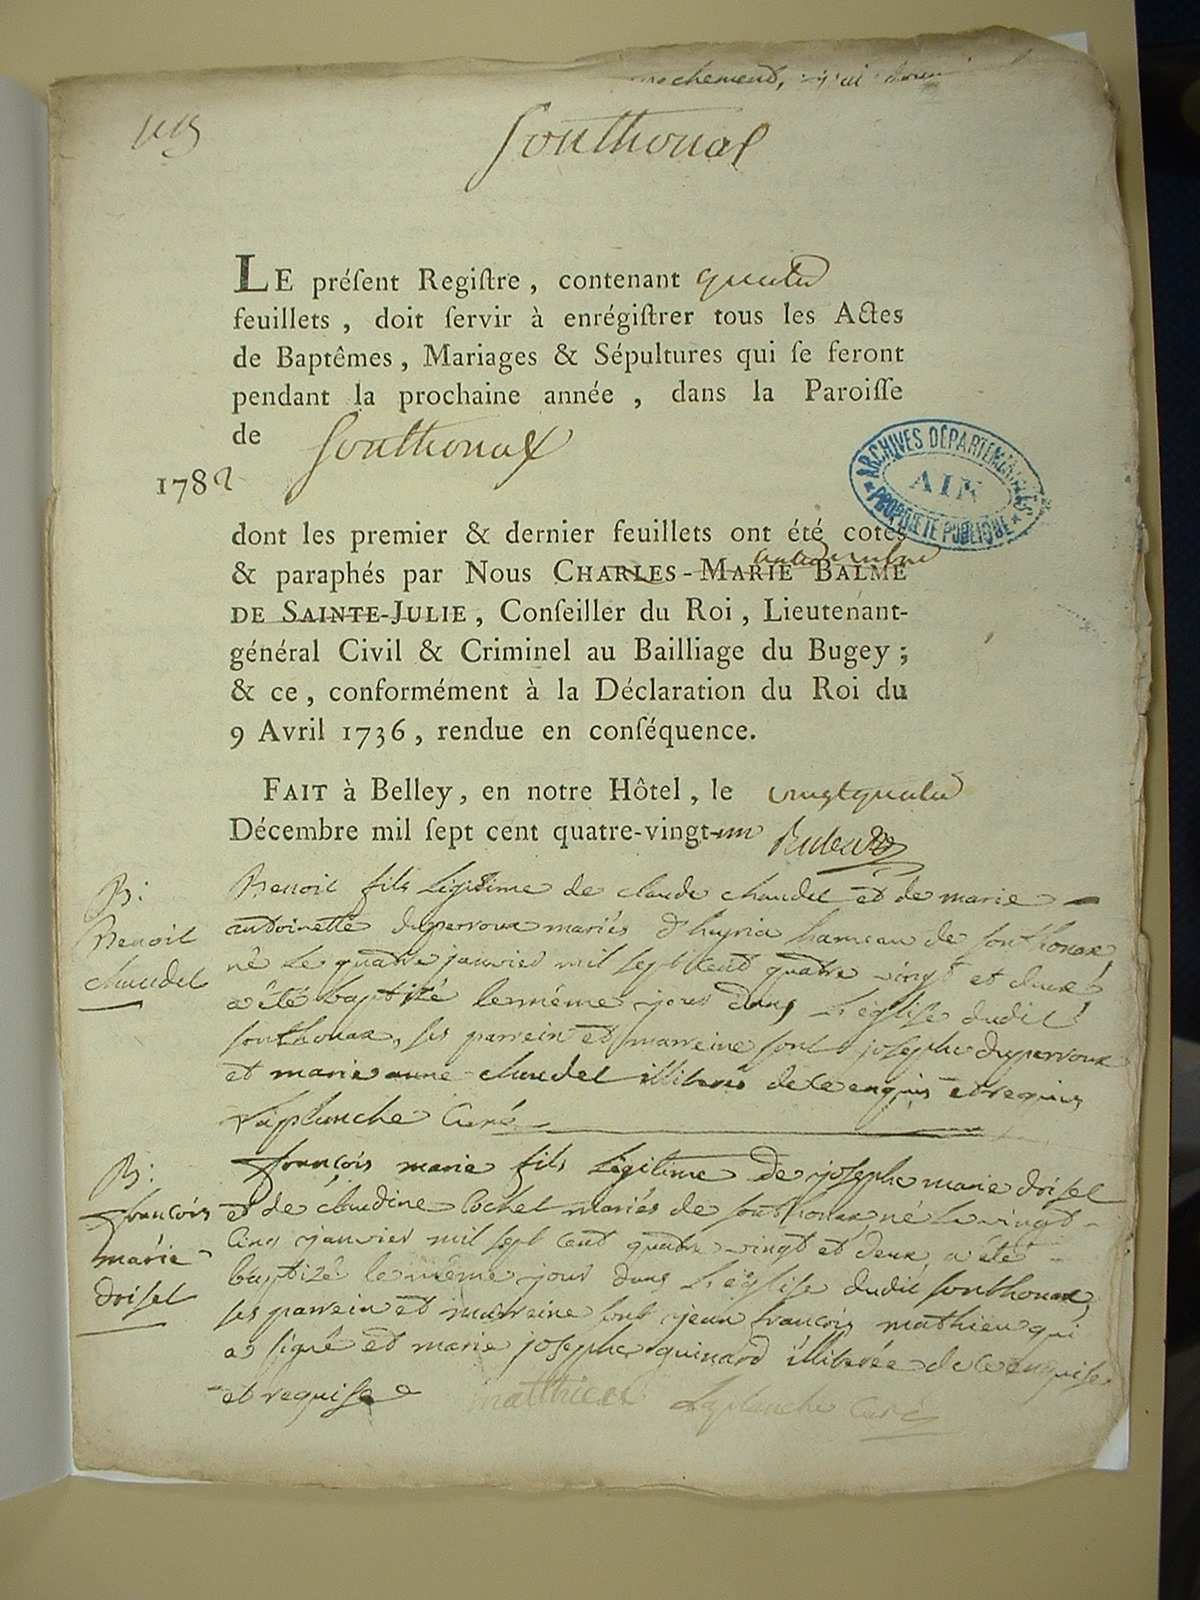 Sonthonax
LE préſent Regiſtre, contenant quatre
feuillets, doit ſervir à enrégiſtrer tous les Actes
de Baptêmes, Mariages & Sépultures qui ſe feront
pendant la prochaine année, dans la Paroiſſe
de Sonthonax
1782
ARCHIVES DÉPARTEMENTALES
AIN
PROPRIÉTÉ PUBLIQUE
dont les premier & dernier feuillets ont été cotés
& paraphés par Nous CHARLES-MARIE BALME
DE SAINTE-JULIE, Conſeiller du Roi, Lieutenant-
général Civil & Criminel au Bailliage du Bugey;
& ce, conformément à la Déclaration du Roi du
9 Avril 1736, rendue en conſéquence.
FAIT à Belley, en notre Hôtel, le vingtquatre
Décembre mil ſept cent quatre-vingt-un
B:
Benoit
chaudel
Benoit fils légitime de claude chaudel et de marie
antoinette duperroux mariés d'hyria hameau de sonthonax
né le quatre janvier mil sept cent quatre vingt et deux
a été baptizé le même jour dans L'église dudit
sonthonax, ses parrein et marreine sont josephe duperroux
et marie anne chaudel illiterés de ce enquis et requis
Laplanche Curé
B:
françois
marie
doisel
françois marie fils légitime de josephe marie doisel
et de claudine Cochet mariés de sonthonax né le vingt
cinq janvier mil sept cent quatre vingt et deux, a été
baptizé le même jour dans L'église dudit sonthonax,
ses parrein et marreine sont jean françois mathieu qui
a signé et marie josephe guinard illiterée de ce enquise
et requise
matthieu Laplanche Curé